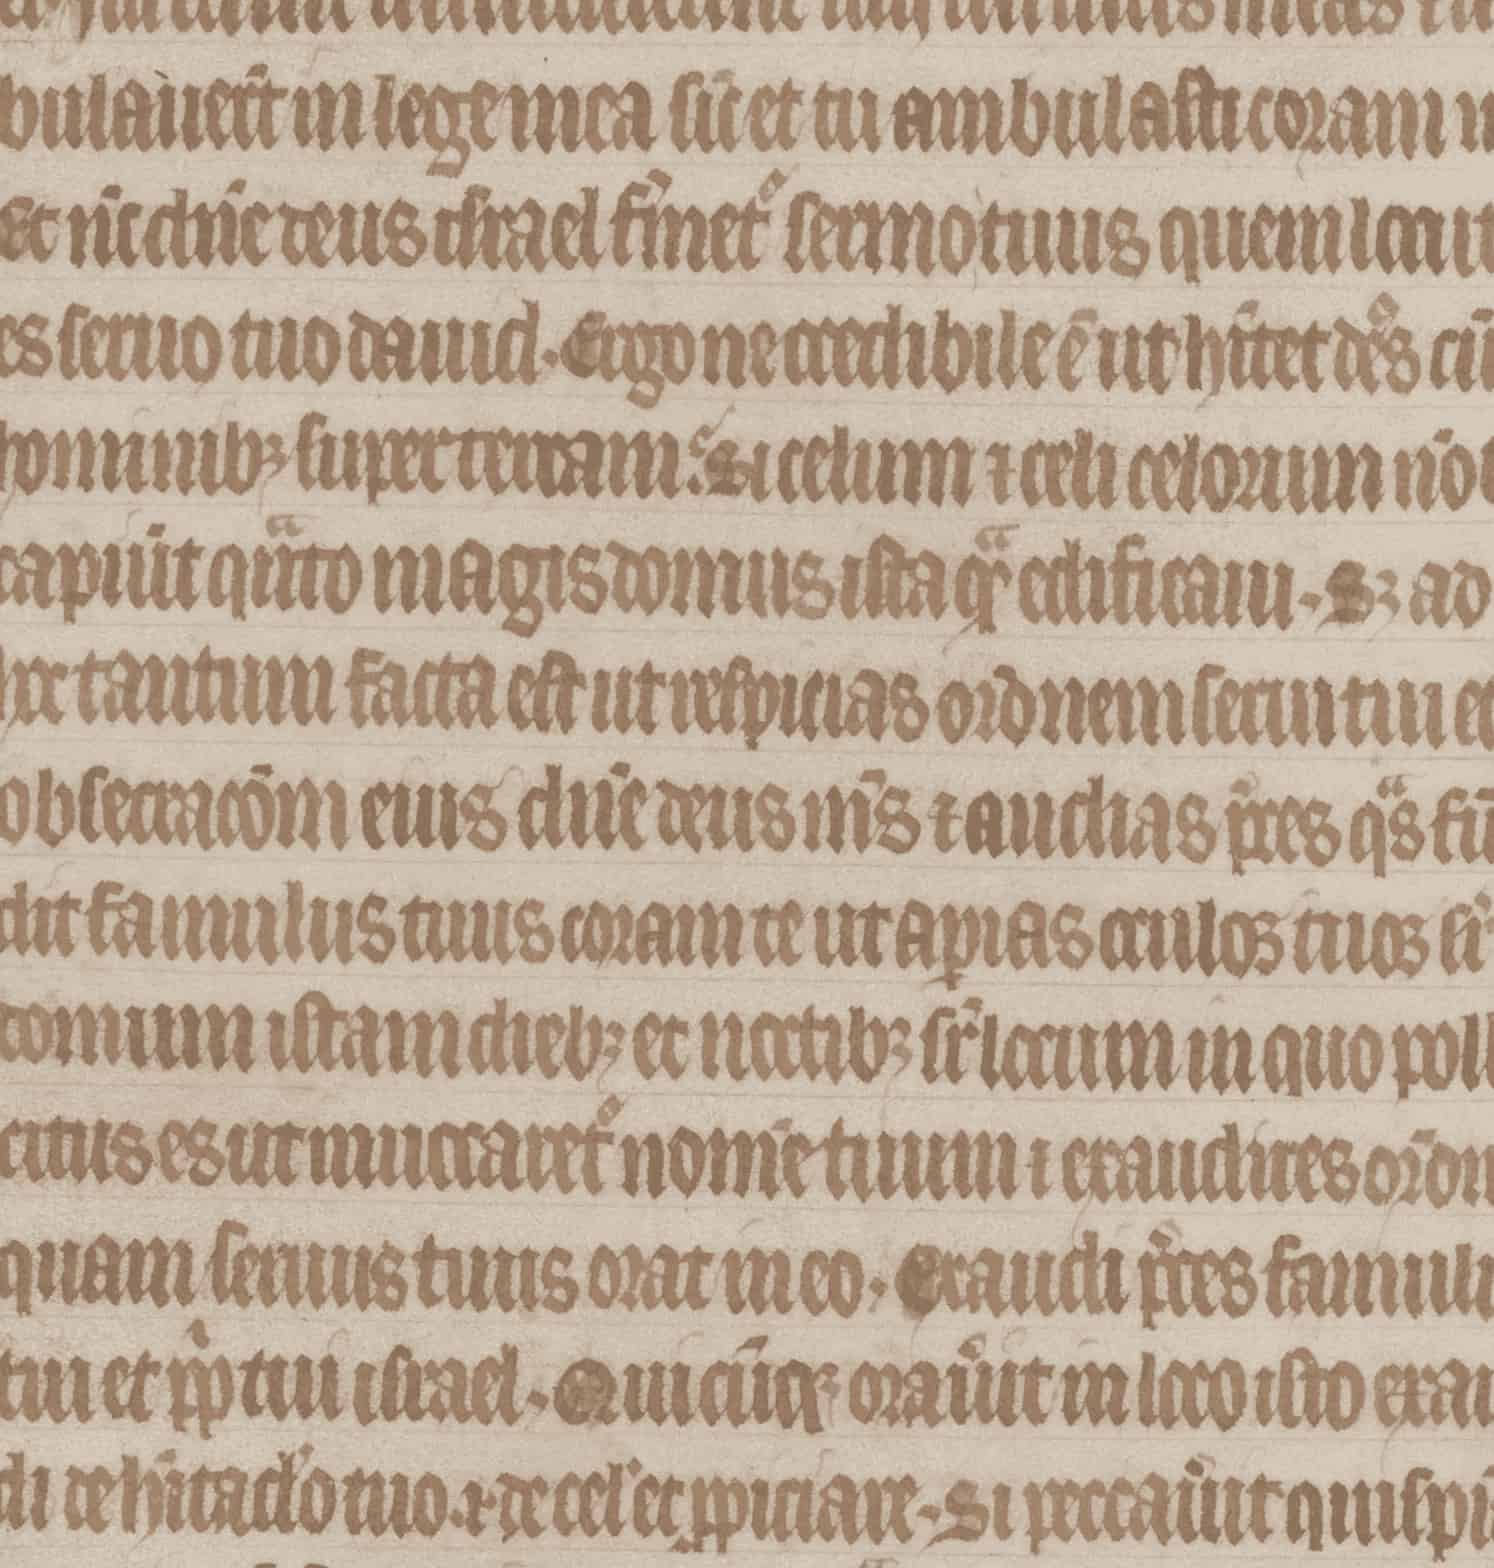 bulauerīt in lege mea sic̄ et tu ambulasti coram
Et nūc dn̄e deus israel firmet᷑ sermo tuus quem locut
es seruo tuo dauid. Ergo ne credibile ē ut hītet dēs cū
hominibꝫ super terram. Si celum ⁊ celi celorum nō
capiūt qͣnto magis domus ista qͣ edificaui. Sꝫ ad
hoc tantum facta est ut respicias or̄onem serui tui et
obsecracōm eius dn̄e deus ms̄ ⁊ audias p̄ces qͣs fū
dit famulus tuus coram te ut apias oculos tuos sr̄
domum istam diebꝫ et noctibꝫ sr̄ locum in quo poll
citus es ut inuocaret᷑ nom̄e tuum ⁊ exaudires or̄on
quam seruus tuus orat in eo. Exaudi p̄ces famuli
tui et ppl̄i tui israel. Quicūqꝫ orauīt in loco isto exau
di de hītaclo tuo. ⁊ de cel' et ꝓpiciare. Si peccauīt quispi